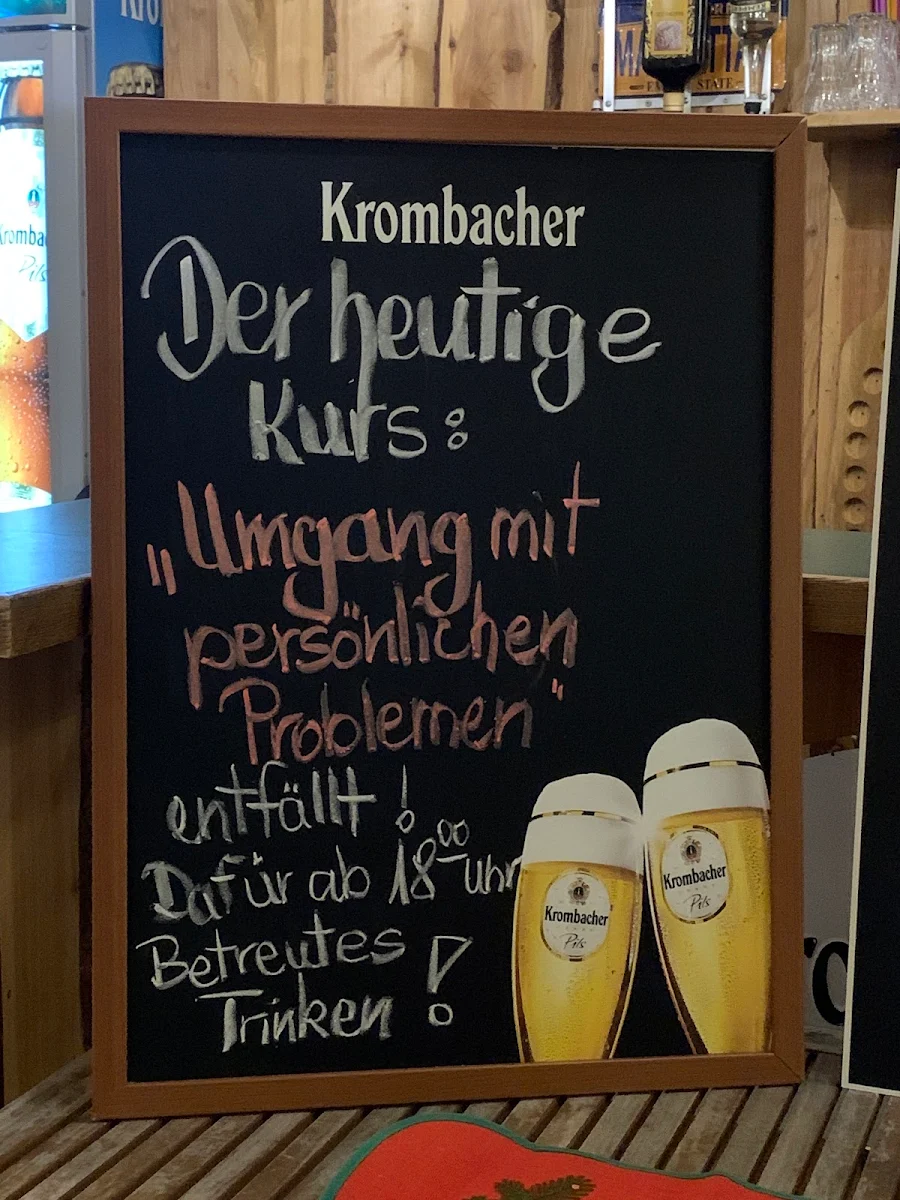 Kro
Kromba
Pils
STATE
Krombacher
Der heutige
Kurs:
„Umgang mit
persönlichen
Problemen“
entfällt!
Dafür ab 18⁰⁰ Uhr
Betreutes
Trinken!
Krombacher
Pils
Krombacher
Pils